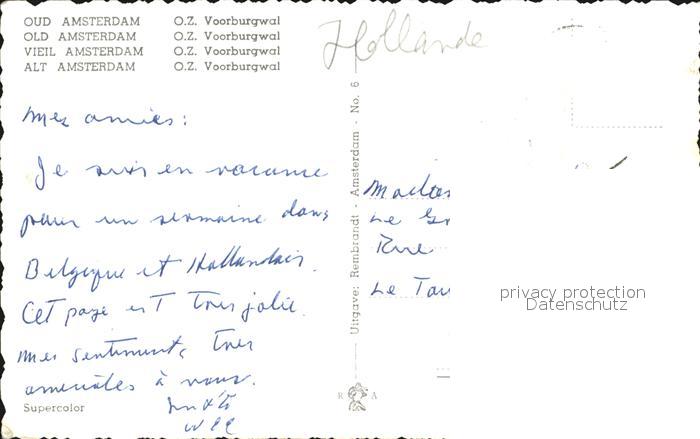 OUD AMSTERDAM O.Z. Voorburgwal
OLD AMSTERDAM O.Z. Voorburgwal
VIEIL AMSTERDAM O.Z. Voorburgwal
ALT AMSTERDAM O.Z. Voorburgwal
Hollande
Mes amies:
Je suis en vacance
pour un semaine dans
Belgique et Hollandais.
Cet page est tres jolie.
mes sentiments, tres
à vous.
Supercolor
Uitgave: Rembrandt - Amsterdam - No. 6
R A
Le
Rue
Le
privacy protection
Datenschutz